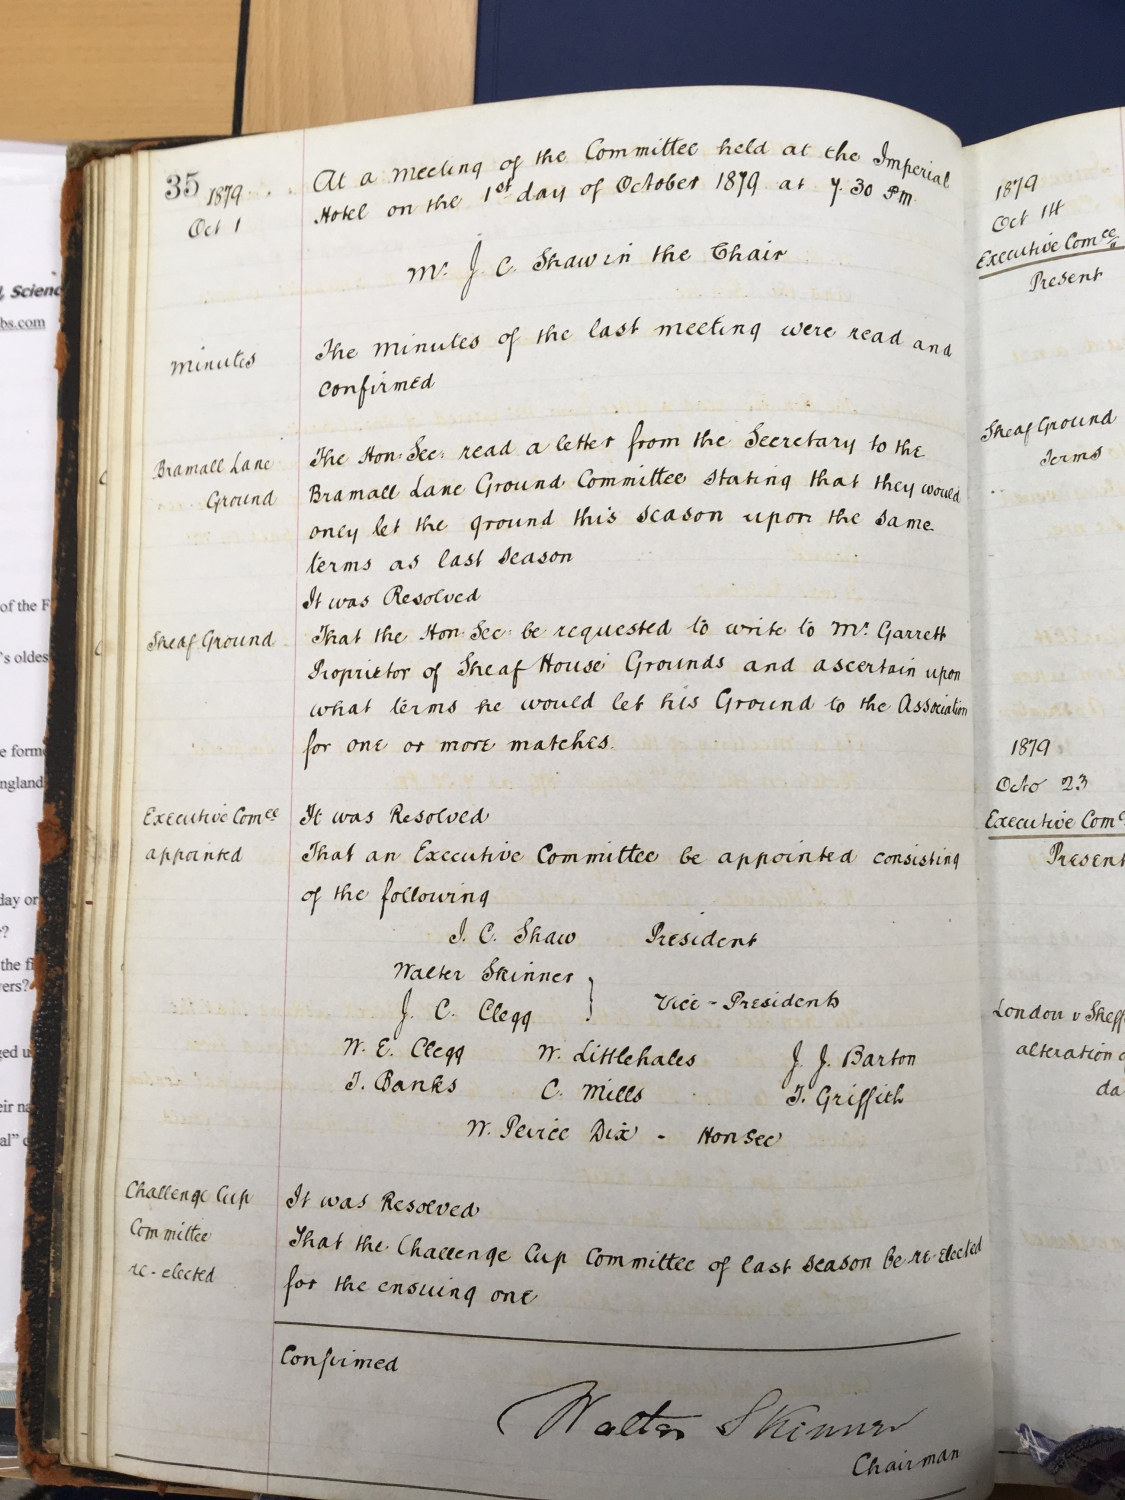 35 1879
Oct 1
At a meeting of the Committee held at the Imperial
Hotel on the 1st day of October 1879 at 7.30 Pm
Mr. J. C. Shaw in the Chair
Minutes
The minutes of the last meeting were read and
confirmed
Bramall Lane
Ground
The Hon. Sec. read a letter from the Secretary to the
Bramall Lane Ground Committee stating that they would
only let the ground this season upon the same
terms as last season
It was Resolved
Sheaf Ground
That the Hon. Sec. be requested to write to Mr. Garrett
Proprietor of Sheaf House Grounds and ascertain upon
what terms he would let his Ground to the Association
for one or more matches.
Executive Comee
appointed
It was Resolved
That an Executive Committee be appointed consisting
of the following
J. C. Shaw President
Walter Skinner
J. C. Clegg } Vice-Presidents
W. E. Clegg W. Littlehales J. J. Barton
T. Banks C. Mills T. Griffith
W. Peirce Dix - Hon Sec
Challenge Cup
Committee
re-elected
It was Resolved
That the Challenge Cup Committee of last season be re-elected
for the ensuing one
Confirmed
Walter Skinner
Chairman
1879
Oct 14
Executive Comee
Present
Sheaf Ground
Terms
1879
Octo 23
Executive Com
Present
London v Sheff
alteration
da
, Scienc
bs.com
of the F
's oldes
e form
ngland
day or
?
the fi
vers?
ged u
eir na
al"